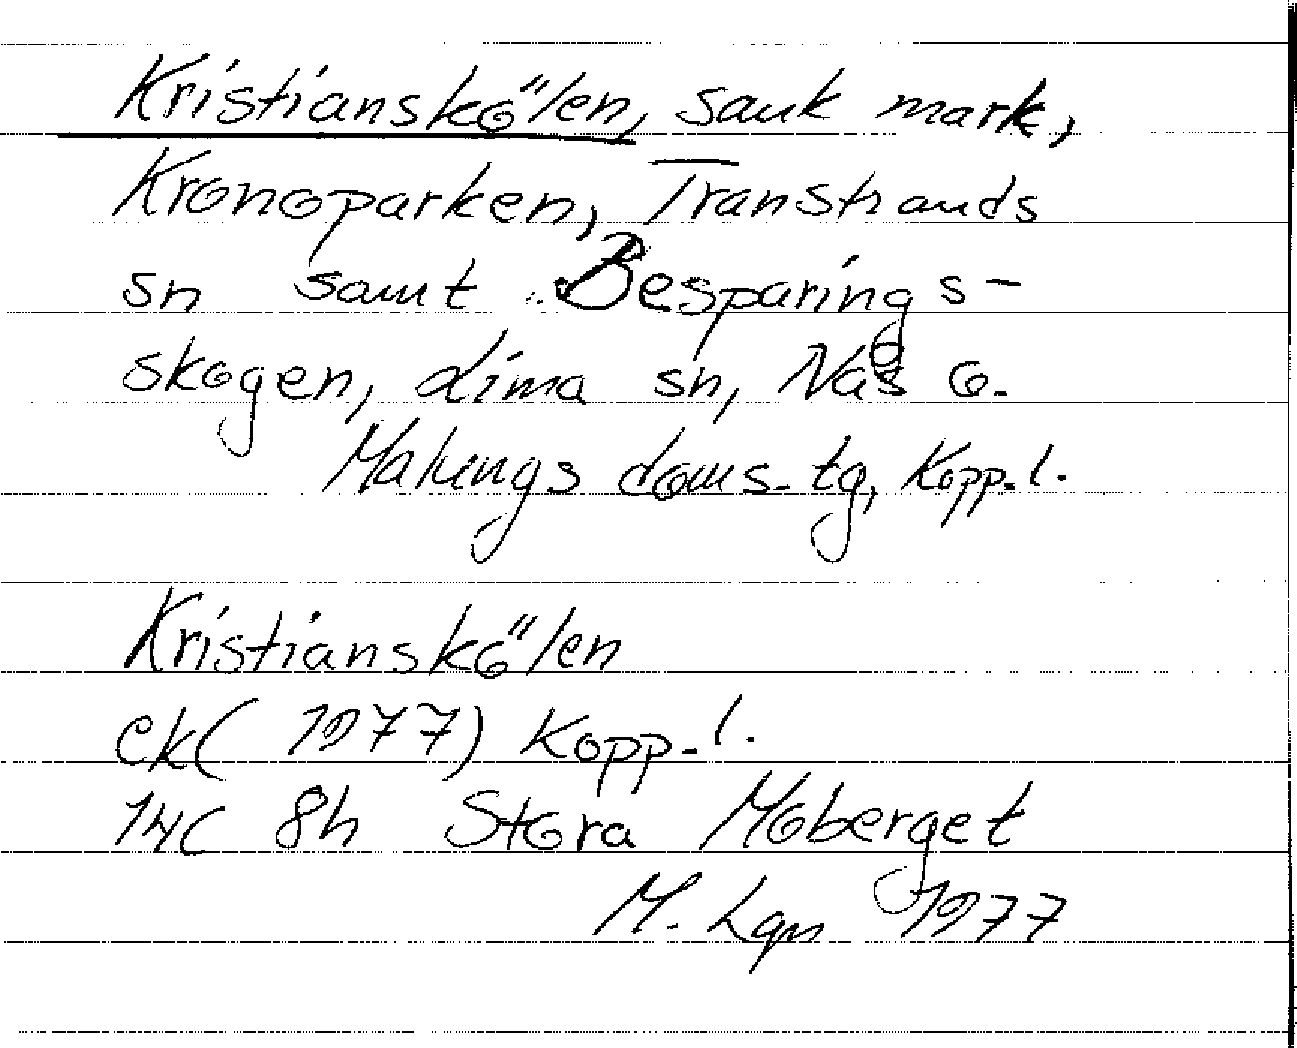 Kristianskölen, sank mark,
Kronoparken, Transtrands
sn samt Besparings-
skogen, Lima sn, Näs o.
Malungs doms. tg, Kopp. l.
Kristianskölen
ek (1977) Kopp. l.
14C 8h Stora Moberget
M. Lgn 1977